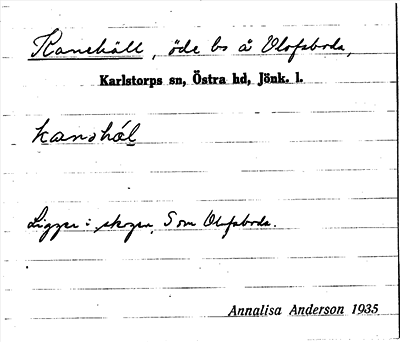 Kanehäll, öde bs å Olofsboda,
Karlstorps sn, Östra hd, Jönk. l.
kanəhál
Ligger i skogen, S om Olofsboda.
Annalisa Anderson 1935